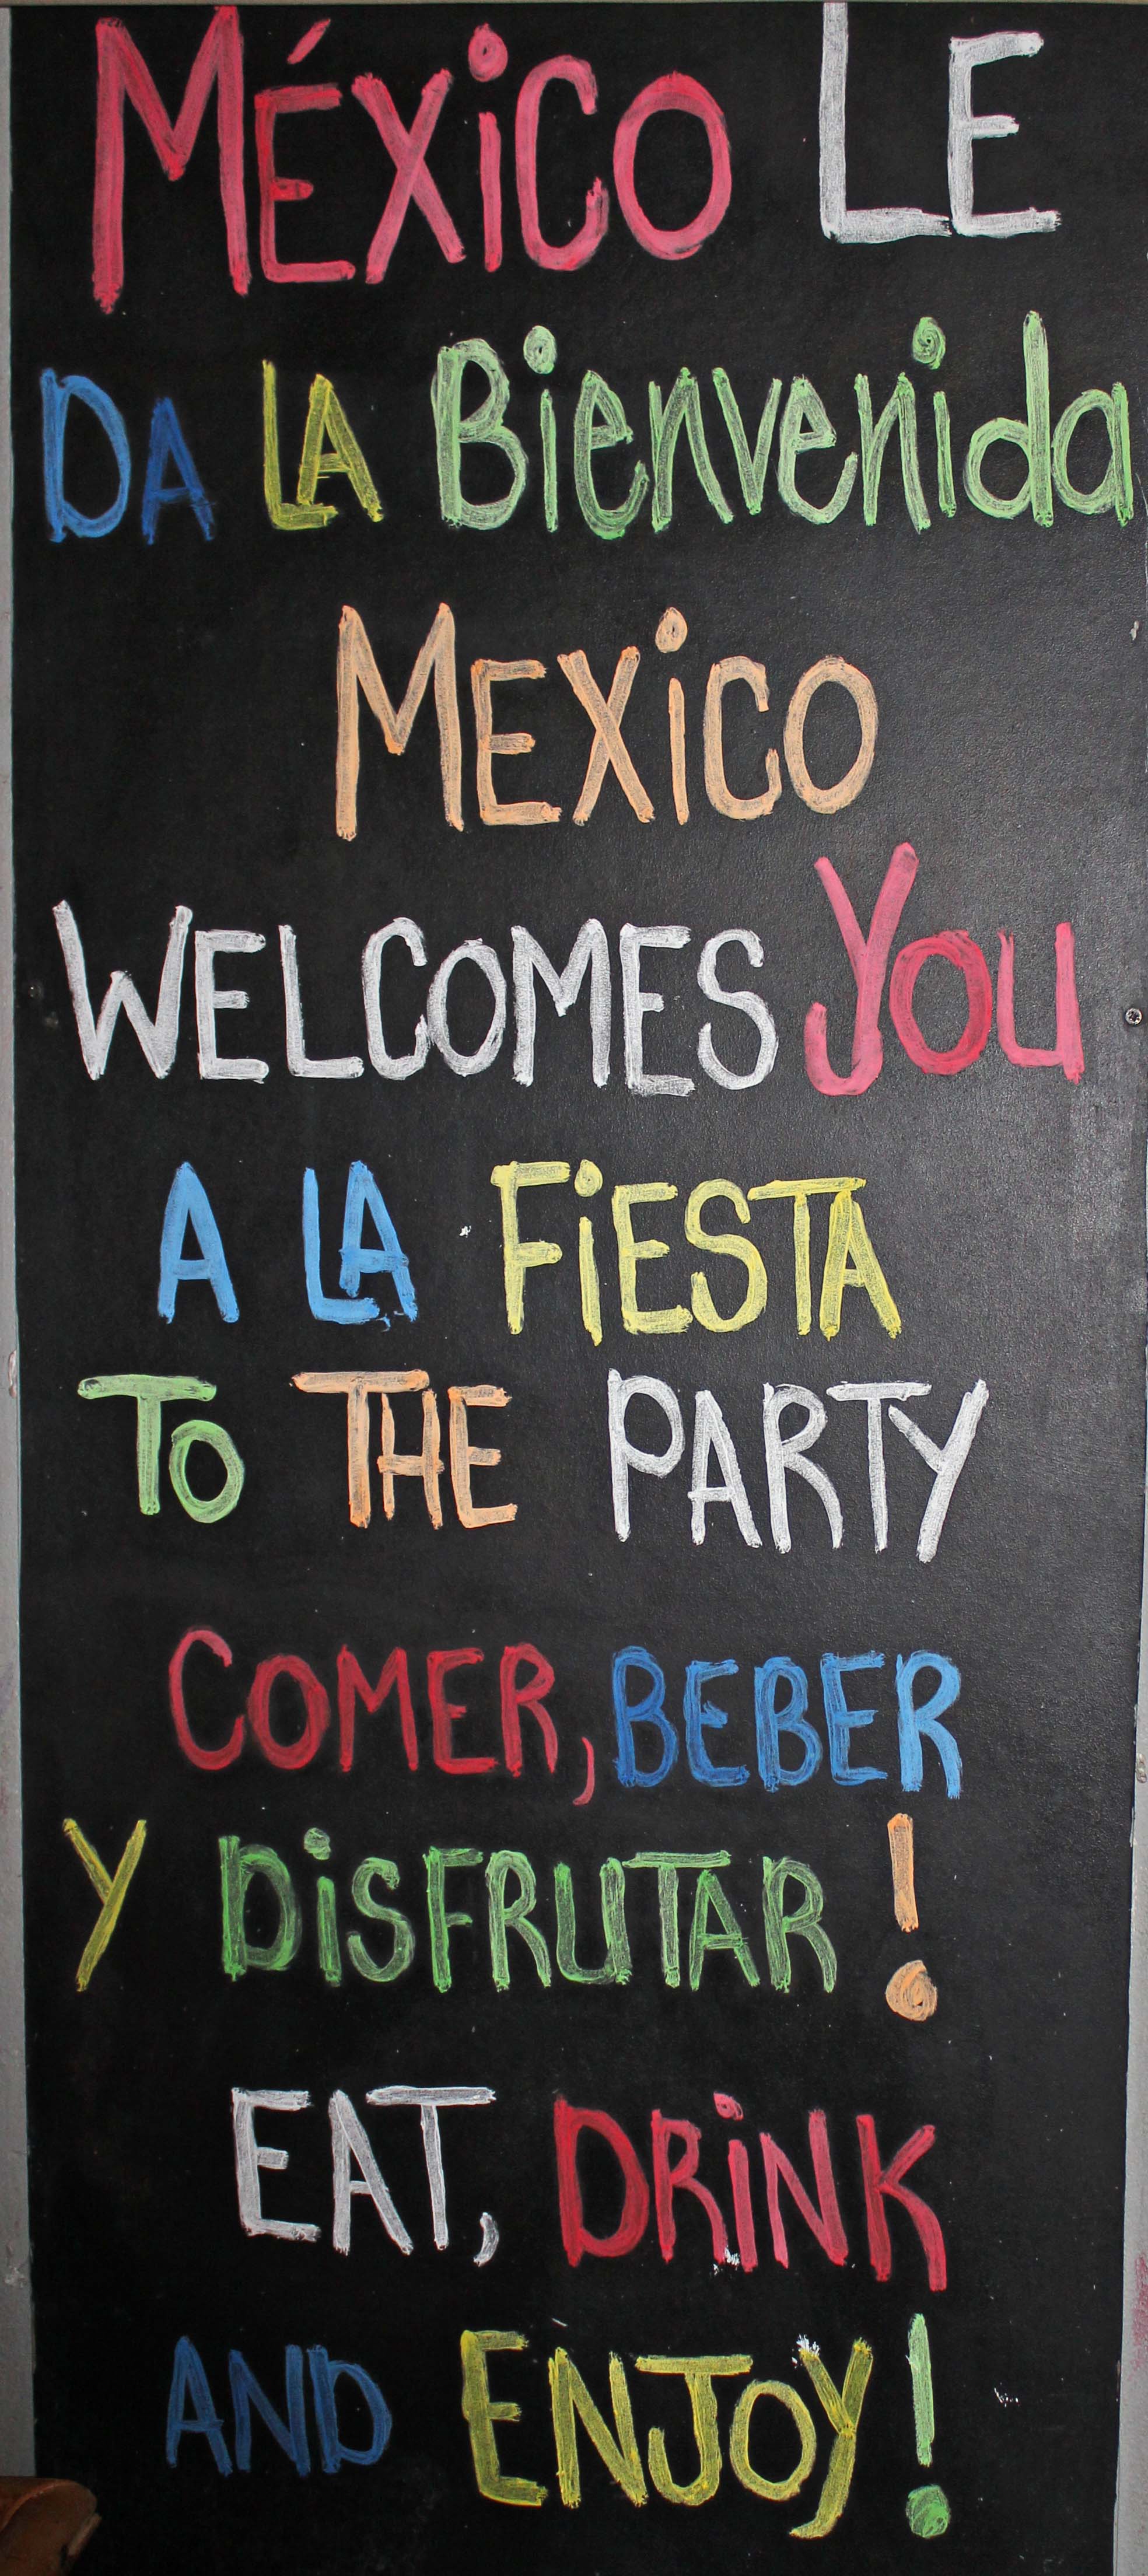 MÉXiCO LE
DA LA Bienvenida
MEXiCO
WELCOMES YOU
A LA FiESTA
TO THE PARTY
COMER, BEBER
Y DiSFRUTAR !
EAT, DRiNK
AND ENJOY!